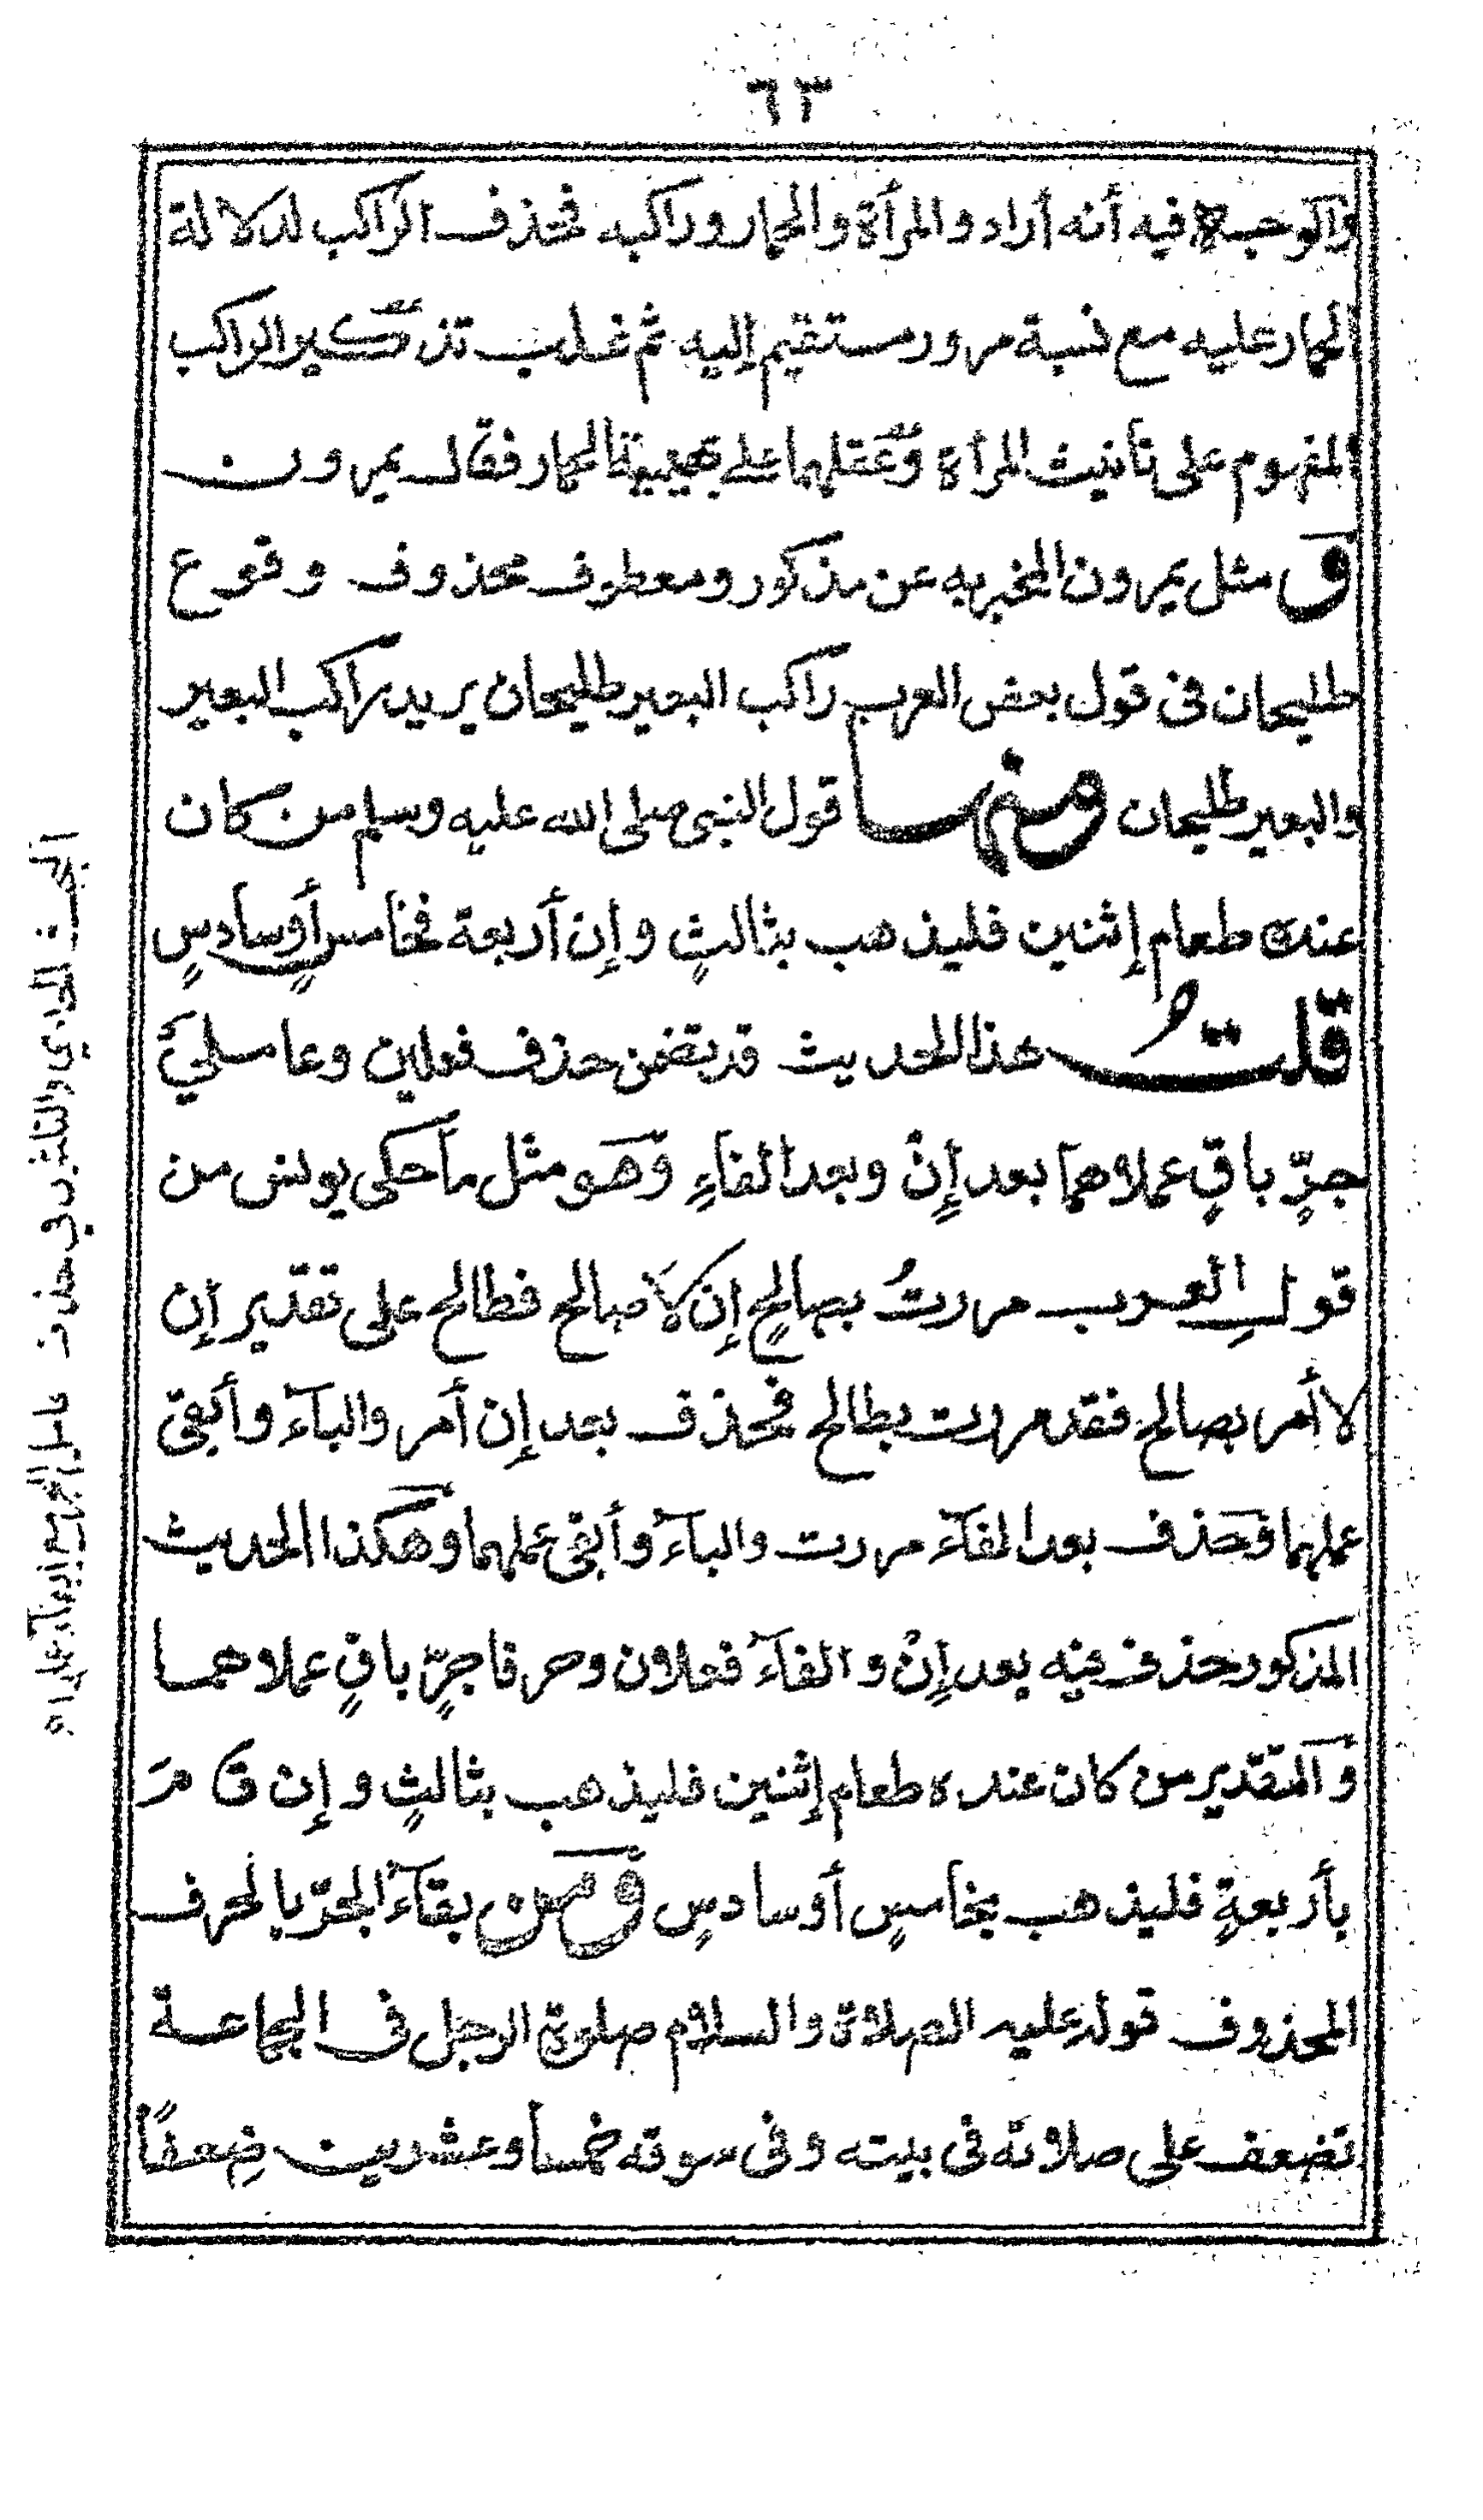 ٦٣
والوجه فيه أنه أراد والمرأة والحمار وراكبه فحذف الراكب لدلالة
الحمار عليه مع نسبة مرور مستقيم إليه ثم غلب تذكير الراكب
المفهوم على تأنيث المرأة وعقلهما على بهيمية الحمار فقال يمرون
و مثل يمرون المخبر به عن مذكور ومعطوف محذوف وقوع
طليحان فى قول بعض العرب راكب البعير طليحان يريد راكب البعير
والبعير طليحان ومنها قول النبى صلى الله عليه وسلم من كان
عنده طعام إثنين فليذهب بثالثٍ وإن أربعة فخامسٍ أو سادسٍ
قلت هذا الحديث قد تضمن حذف فعلين وعاملي
جرٍّ باقٍ عملاهما بعد إنْ وبعد الفاءِ وهو مثل ما حكى يونس من
قولِ العرب مررتُ بصالحٍ إن لا صالح فطالح على تقدير إن
لا أمر بصالح فقد مررت بطالح فحذف بعد إن أمر والبآء وأبقى
عملها وحذف بعد الفآء مررت والبآء وأبقى عملهما وهكذا الحديث
المذكور حذف فيه بعد إنْ والفآء فعلان وحرفا جرٍّ باقٍ عملاهما
والتقدير من كان عنده طعام إثنين فليذهب بثالثٍ وإن قامَ
بأربعةٍ فليذهب بخامسٍ أو سادسٍ ومن بقآء الجرّ بالحرف
المحذوف قوله عليه الصلاة والسلام صلوة الرجل فى الجماعة
تضعف على صلاته فى بيته وفى سوقه خمسا وعشرين ضِعفًا
البحث الحادي والثلاثون في حذف عامل الجر